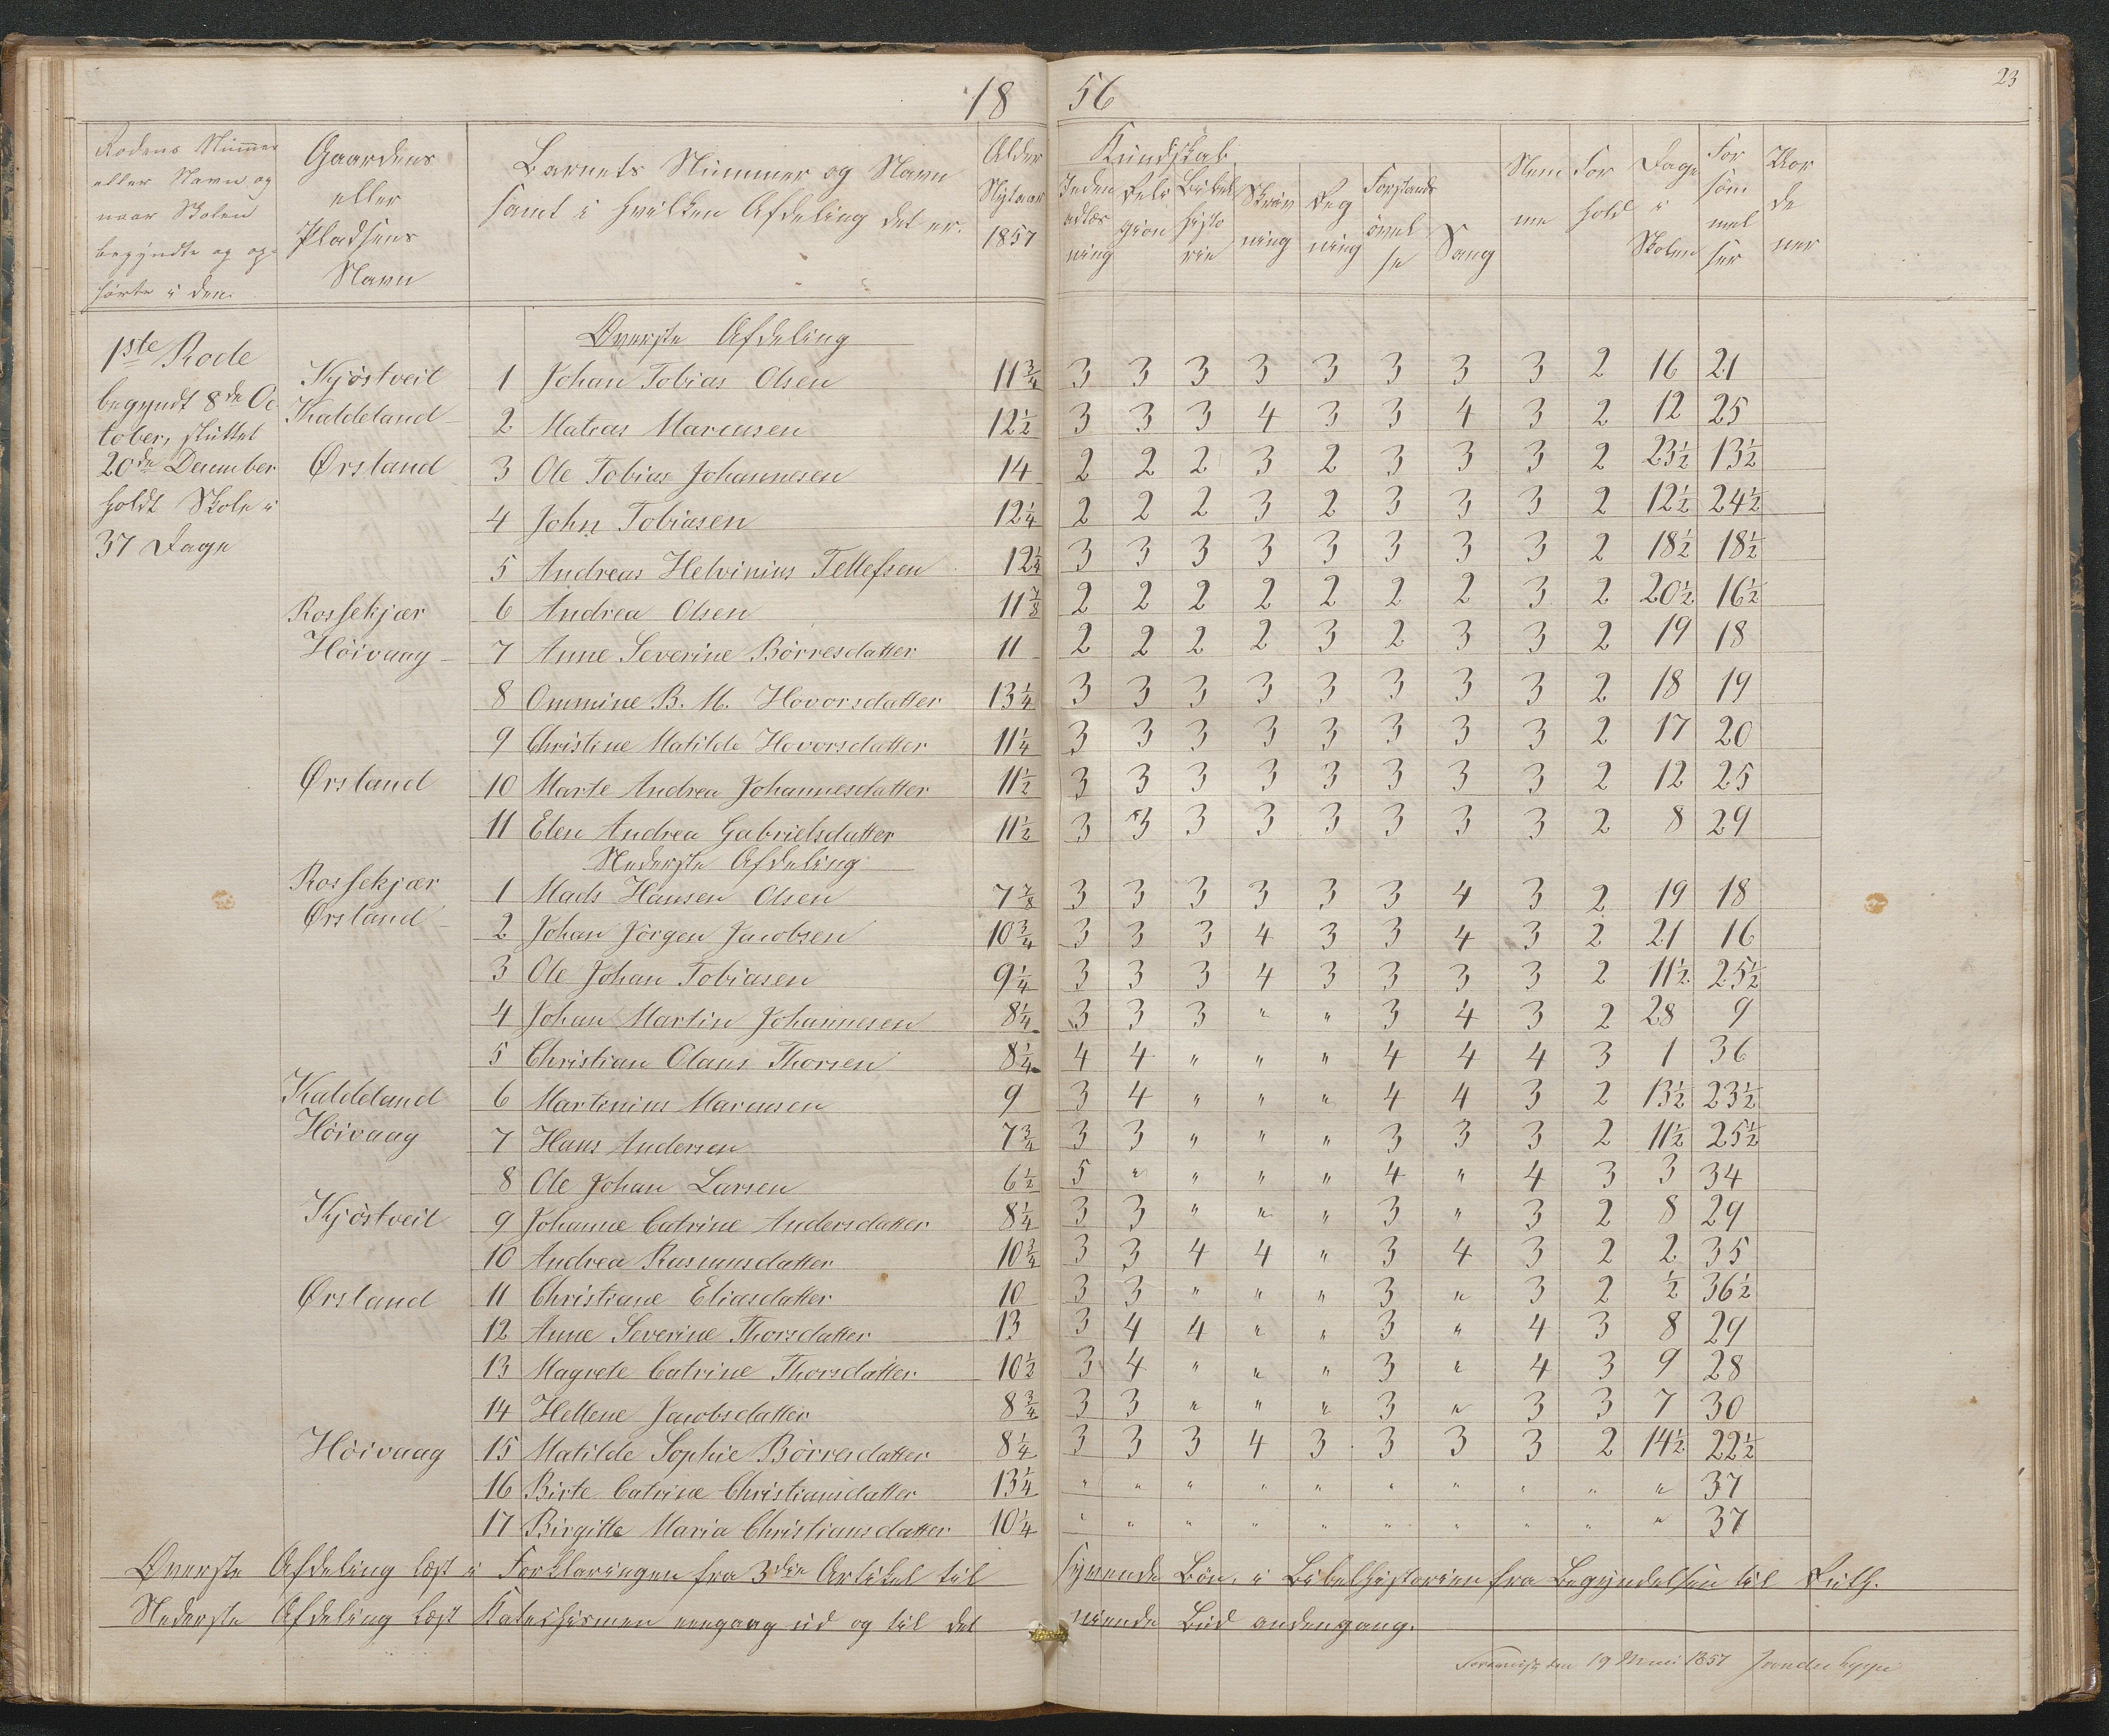 1856
23
Rodens Nummer eller Navn og naar Skolen begyndte og ophörte i den.
Gaardens eller Pladsens Navn
Barnets Nummer og Navn samt i hvilken Afdeling det er.
Alder Nytaar 1857
Kundskab
Indenadlæsning
Religion
Bibelhistorie
Skrivning
Regning
Forstandsövelse
Sang
Nemme
Forhold
Dage i Skolen
Forsömmelser
Vordener
1ste Rode
begyndt 8de October, sluttet 20de December holdt Skole i 37 Dage
Øverste Afdeling
Kjöstveit 1 Johan Tobias Olsen 11 3/4 3 3 3 3 3 3 3 3 2 16 21
Kaldeland 2 Matias Marcusen 12 1/2 3 3 3 4 3 3 4 3 2 12 25
Ørsland 3 Ole Tobias Johannesen 14 2 2 2 3 2 3 3 3 2 23 1/2 13 1/2
4 John Tobiasen 12 1/4 2 2 2 3 2 3 3 3 2 12 1/2 24 1/2
5 Andreas Helvinius Tellefsen 12 1/4 3 3 3 3 3 3 3 3 2 18 1/2 18 1/2
Rossekjær 6 Andrea Olsen 11 7/8 2 2 2 2 2 2 2 3 2 20 1/2 16 1/2
Höivaag 7 Anne Severine Börresdatter 11 2 2 2 2 3 2 3 3 2 19 18
8 Ommine B. M. Hovorsdatter 13 1/4 3 3 3 3 3 3 3 3 2 18 19
9 Christine Matilde Hovorsdatter 11 1/4 3 3 3 3 3 3 3 3 2 17 20
Ørsland 10 Marte Andrea Johannesdatter 11 1/2 3 3 3 3 3 3 3 3 2 12 25
11 Elen Andrea Gabrielsdatter 11 1/2 3 3 3 3 3 3 3 3 2 8 29
Nederste Afdeling
Rossekjær 1 Mads Hansen Olsen 7 7/8 3 3 3 3 3 3 4 3 2 19 18
Ørsland 2 Johan Jörgen Jacobsen 10 3/4 3 3 3 4 3 3 4 3 2 21 16
3 Ole Johan Tobiasen 9 1/4 3 3 3 4 3 3 3 3 2 11 1/2 25 1/2
4 Johan Martin Johannesen 8 1/4 3 3 3 " " 3 4 3 2 28 9
5 Christian Olaus Thorsen 8 1/4 4 4 " " " 4 4 4 3 1 36
Kaldeland 6 Martinius Marcusen 9 3 4 " " " 4 4 3 2 13 1/2 23 1/2
Höivaag 7 Hans Andersen 7 3/4 3 3 " " " 3 3 3 2 11 1/2 25 1/2
8 Ole Johan Larsen 6 1/2 5 " " " " 4 " 4 3 3 34
Kjöstveit 9 Johanne Catrine Andersdatter 8 1/4 3 3 " " " 3 " 3 2 8 29
10 Andrea Rasmusdatter 10 3/4 3 3 4 4 " 3 4 3 2 2 35
Ørsland 11 Christiane Eliasdatter 10 3 3 " " " 3 " 3 2 1/2 36 1/2
12 Anne Severine Thorsdatter 13 3 4 4 " " 3 " 4 3 8 29
13 Magrete Catrine Thorsdatter 10 1/2 3 4 " " " 3 " 4 3 9 28
14 Hellene Jacobsdatter 8 3/4 3 3 " " " 3 " 3 3 7 30
Höivaag 15 Matilde Sophie Börresdatter 8 1/4 3 3 3 4 3 3 3 3 2 14 1/2 22 1/2
16 Birte Catrine Christiansdatter 13 1/4 " " " " " " " " " " 37
17 Birgitte Maria Christiansdatter 10 1/4 " " " " " " " " " " 37
Øverste Afdeling læst i Forklaringen fra 3die Artikel til syvende Bön, i Bibelhistorien fra Begyndelsen til Ruth.
Nederste Afdeling læst Katechismen eengang ud og til det niende Bud andengang.
den 19 Mai 1857